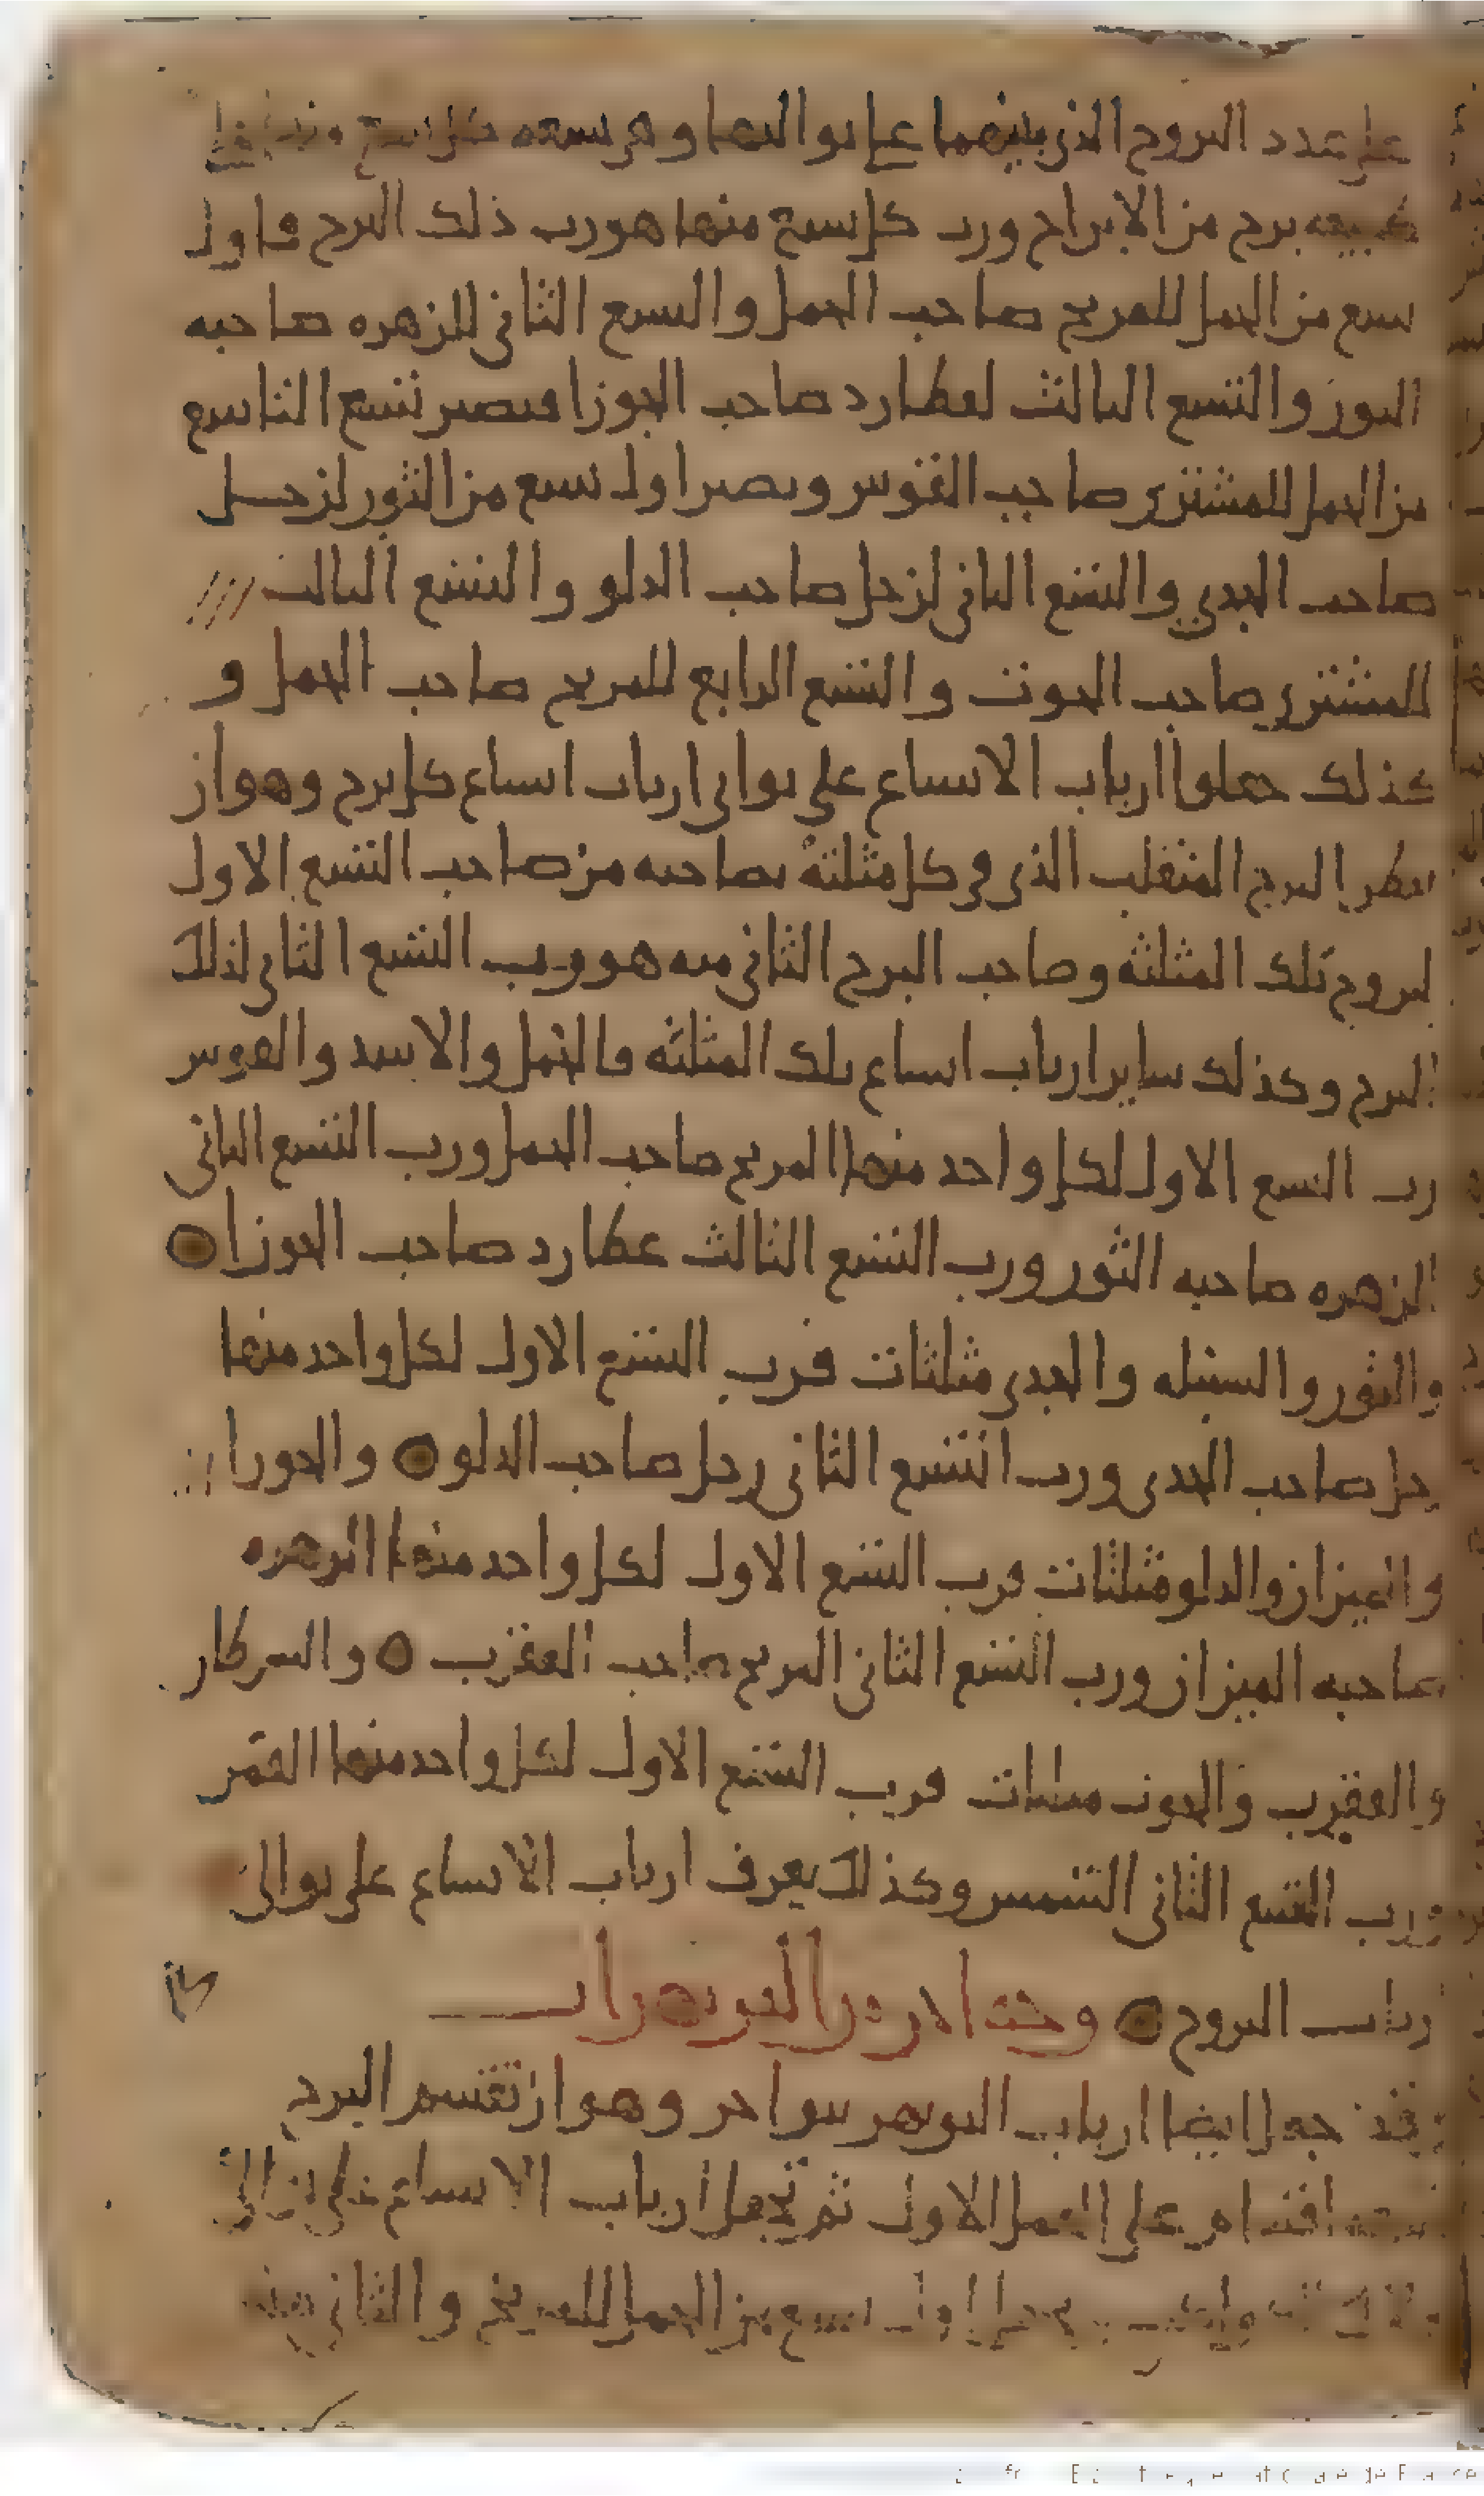 على عدد البروج الذي بينهما على تواليها وهي تسعه كل تسع منها على
طبيعه برج من الابراج ورب كل تسع منها هو رب ذلك البرج فاول
تسع من الحمل للمريخ صاحب الحمل والتسع الثاني للزهره صاحبه
الثور والتسع الثالث لعطارد صاحب الجوزا فيصير تسع التاسع
من الحمل للمشتري صاحب القوس ويصير اول تسع من الثور لزحل
صاحب الجدي والتسع الثاني لزحل صاحب الدلو والتسع الثالث
للمشتري صاحب الحوت والتسع الرابع للمريخ صاحب الحمل و
كذلك جعلوا ارباب الاتساع على توالي ارباب اتساع كل برج وهو ان
ينظر الى البرج المنقلب الذي في كل مثلثة فصاحبه من صاحب التسع الاول
لبروج تلك المثلثه وصاحب البرج الثاني منه هو ورب التسع الثاني لذلك
البرج وكذلك ساير ارباب اتساع تلك المثلثه فالحمل والاسد والقوس
رب التسع الاول لكل واحد منها المريخ صاحب الحمل ورب التسع الثاني
الزهره صاحبه الثور ورب التسع الثالث عطارد صاحب الجوزا
والثور والسنبله والجدي مثلثات فرب التسع الاول لكل واحد منها
زحل صاحب الجدي ورب التسع الثاني زحل صاحب الدلو والجوزا
والميزان والدلو مثلثات فرب التسع الاول لكل واحد منها الزهره
صاحبه الميزان ورب التسع الثاني المريخ صاحب العقرب والسرطان
والعقرب والحوت مثلثات فرب التسع الاول لكل واحد منها القمر
ورب التسع الثاني الشمس وكذلك يعرف ارباب الاتساع على توالي
ارباب البروج
وقد جعل ايضا ارباب النوبهر سواخر وهو ان تقسم البرج
اقسام على العمل الاول ثم تجعل ارباب الاتساع على توالي
اول تسع من الحمل للمريخ والثاني منه